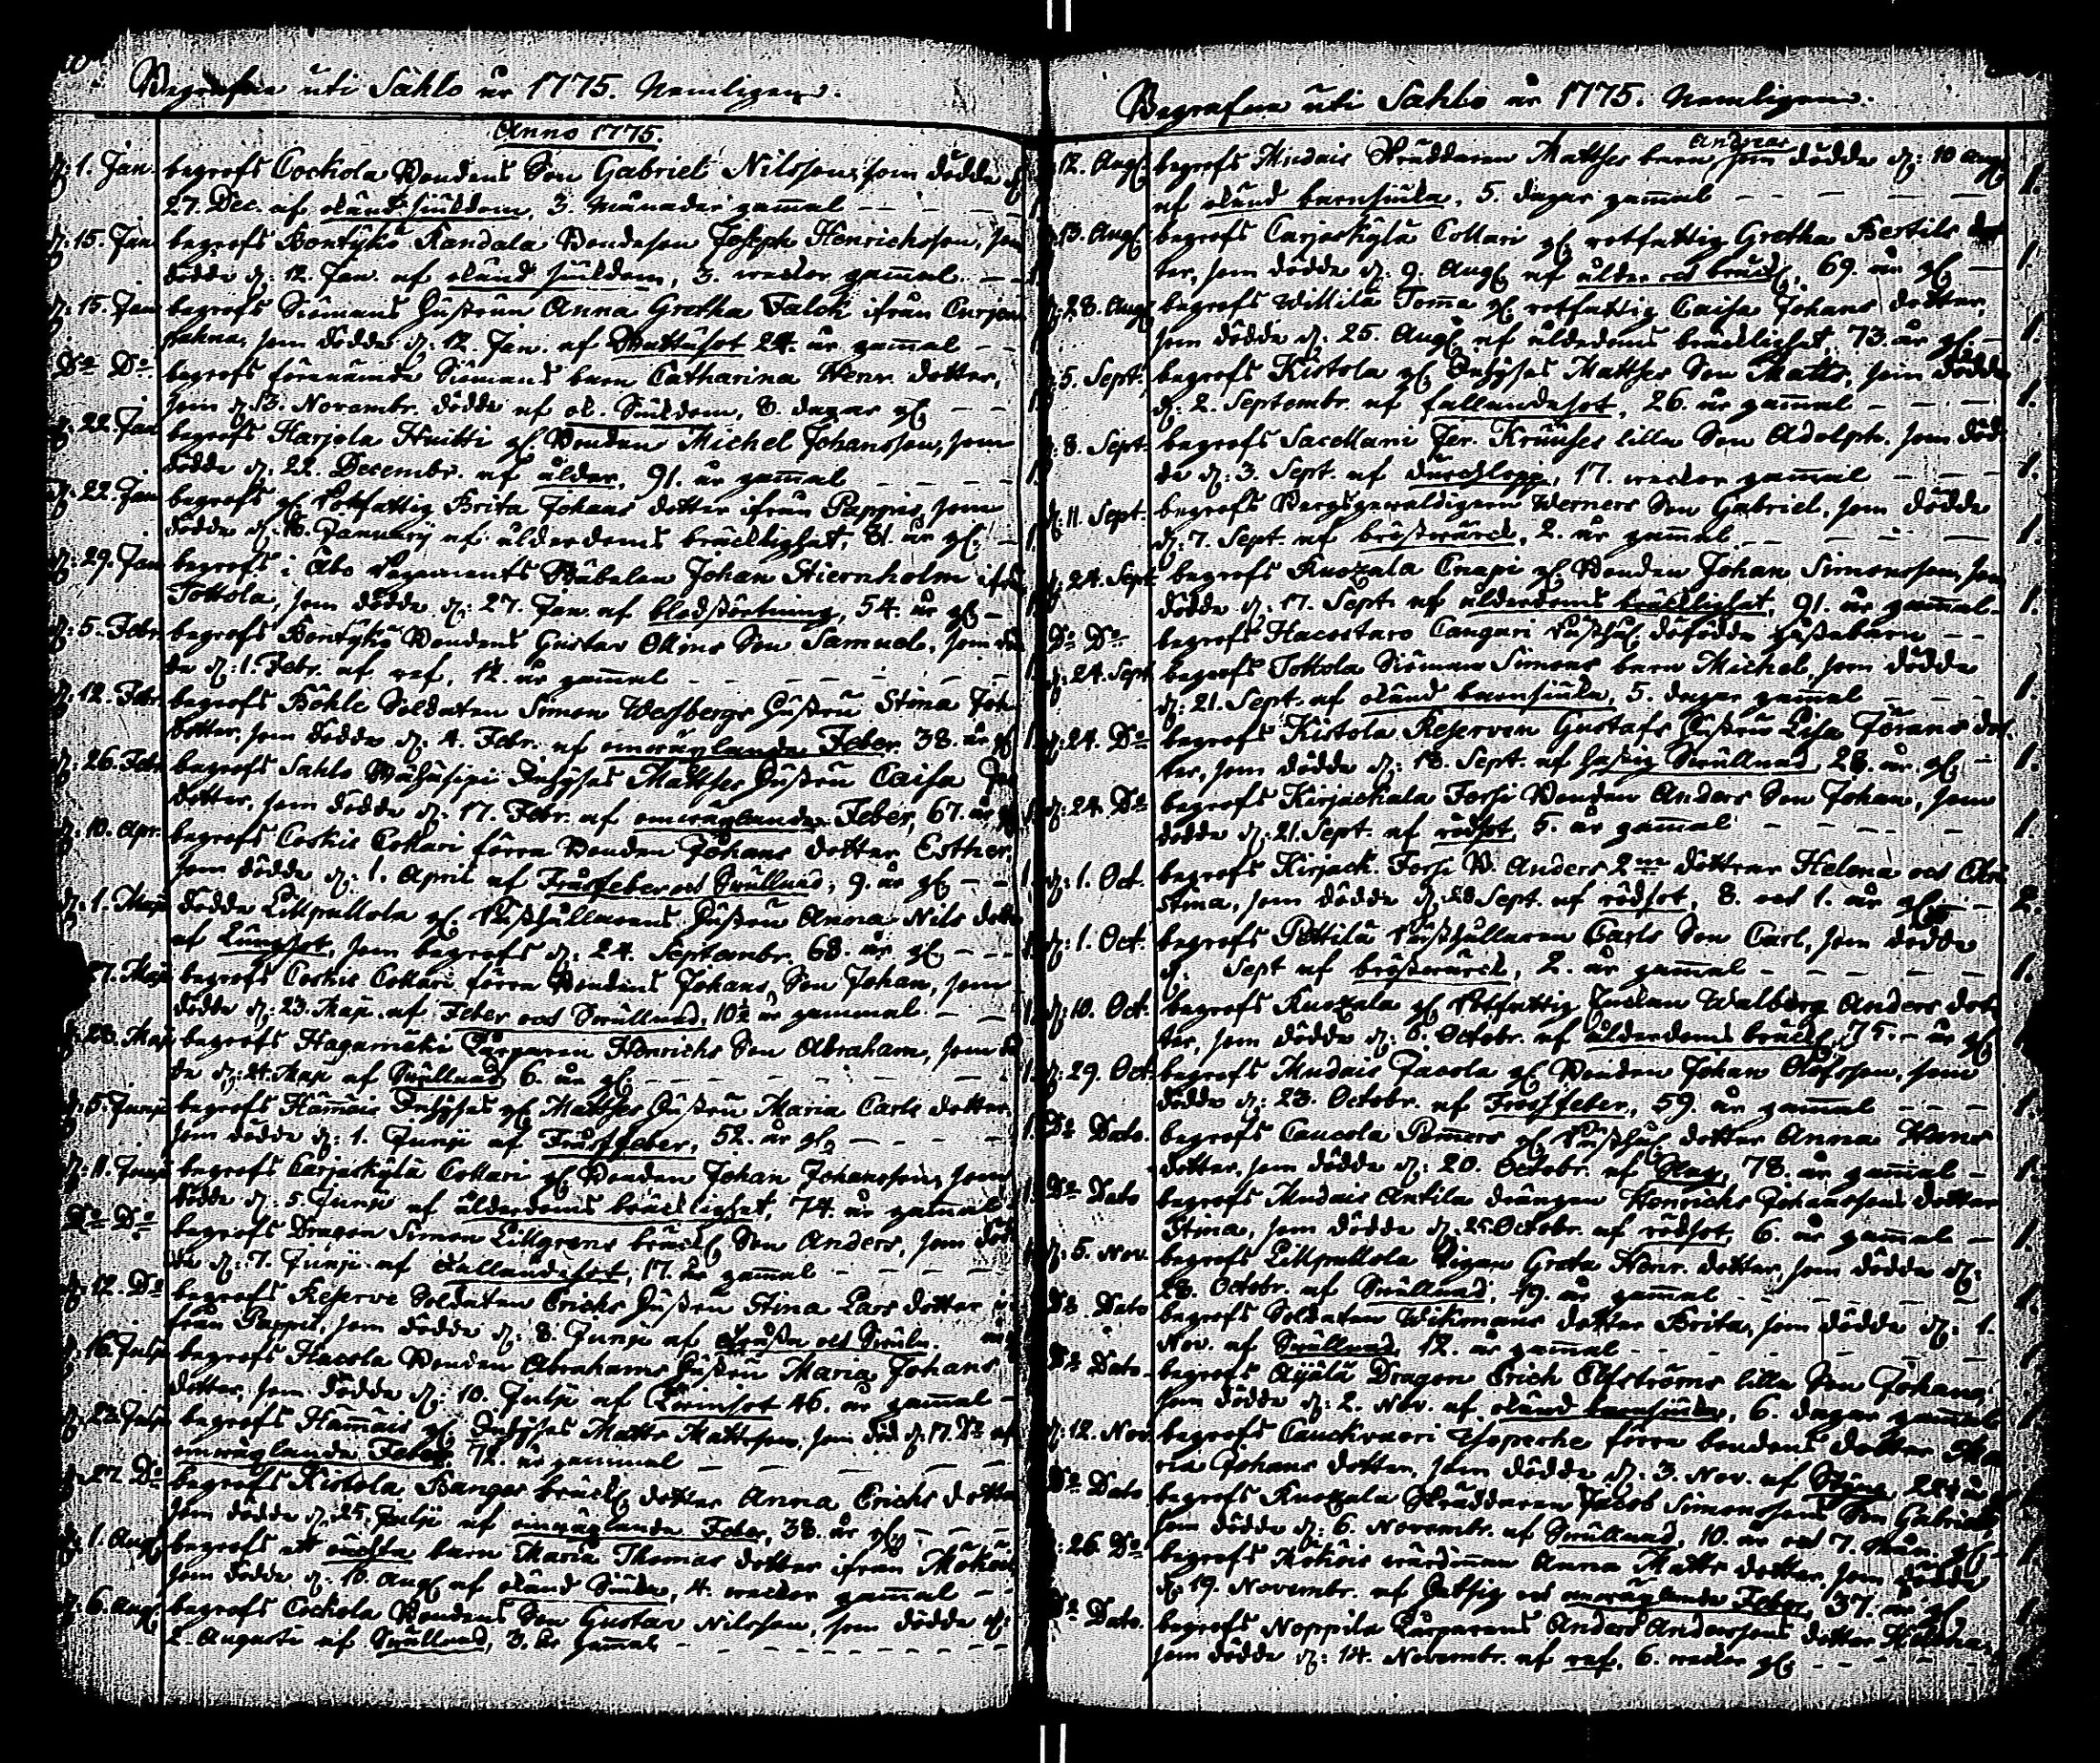 Begrafne uti Sahlo år 1775. Nemligen.
Anno 1775.
d: 1. Jan. begrofs Cockola Bondens Son Gabriel Nilsson, som dödde d:
27. Dec. af okänd siukdom, 3. månader gammal
d: 15. Jan. begrofs Böntykö Kandala Bondeson Joseph Henrichsson, som
dödde d: 12. Jan. af okänd siukdom, 3. weckor gammal
d: 15. Jan. begrofs Siömans hustrun Anna Gretha Falck ifrån
som dödde d: 12. Jan. af Wattusot 24. år gammal
Do Do begrofs förenämde Siömans barn Catharina Henr. dotter,
som d: 13. Novembr. dödde af ok. Siukdom, 8. dagar gl.
d: 22. Jan. begrofs Harjola Huitti gl. Bonden Michel Johansson, som
dödde d: 22. Decembr. af ålder, 91. år gammal
d: 22. Jan. begrofs gl. Rotfattig Brita Johans dotter ifrån Pappis, som
dödde d: Januarij af ålderdoms bräcklighet, 81. år gl.
d: 29. Jan. begrofs i Åbo Regements Johan Stiernholm ifrån
Tottola, som dödde d: 27. Jan. af blodstörtning, 54. år gl.
d: 5. Febr. begrofs Böntykö Bondens Gustav Ollins Son Samuel, som död-
de d: 1. Febr. af ref, 12. år gammal
d: 12. Febr. begrofs Böhle Soldaten Simon Wessbergs hustru Stina Joh.
dotter, som dödde d: 4. Febr. af omwäxlande Feber 38. år gl.
d: 26. Febr. begrofs Sahlo Inhyses Matthes hustru Caisa
dotter, som dödde d: 17. Febr. af omwäxlande Feber, 67. år gl.
d: 10. Apr. begrofs Coskis Collari förra Bonden Johans dotter Esther,
som dödde d: 1. April af Frosfeber och Swullnad, 9. år gl.
d: 1. Maji dödde Lillpullola gl. Rusthållarens hustru Anna Nils dotter
af Lungsot, som begrofs d: 24. Septembr. 68. år gl.
7. Maji begrofs Coskis Collari förra Bondens Johans Son Johan, som
dödde d: 23. Maji af Feber och Swullnad, 10½ år gammal
d: 28. Maji begrofs Hagamäki Torparen Henrichs Son Abraham, som död-
de d: 24. Maji af Swullnad, 6. år gl.
d: 5. Junii begrofs Hämäis Inhyses gl. Matthes hustru Maria Carls dotter,
som dödde d: 1. Junii af Frossfeber, 52. år gl.
d: 11. Junii begrofs Carjaskylä Collari gl. Bonden Johan Johansson, som
dödde d: 5. Junii af ålderdoms bräcklighet, 74. år gammal
Do Do begrofs Dragon Simon Lillgrens bräckl. Son Anders, som död-
de d: 7. Junii af fallandesot, 17. år gammal
d: 12. Do begrofs Reserve Soldaten Erichs hustru Stina Lars dotter i-
från Pappis, som dödde d: 8. Junii af och
d: 16. Julii begrofs Hacola Bonden Abrahams hustru Maria Johans
dotter, som dödde d: 10. Julii af 46. år gammal
d: 23. Julii begrofs Hämäis gl. Inhyses Matts Mattsson, som död d: 17. Do af
omwäxlande Feber, 72. år gammal
d: 27. Do begrofs Kistola Banges bräckl. dotter Anna Erichs dotter
som dödde d: 25. Julii af omwäxlande Feber, 38. år gl.
d: 1. Aug. begrofs ett oächta barn Maria Thomas dotter ifrån
som dödde d: Aug. af okänd Siuka, 4. weckor gammal
d: 6. Aug. begrofs Cockola Bondens Son Gustav Nilsson, som dödde d:
2. Augusti af Swullnad, 3. år gammal
Begrafne uti Sahlo år 1775. Nemligen.
Andreas
12. Aug. begrofs Mudais Skräddaren Matthes barn som dödde d: 10 Aug.
af okänd barnsiuka, 5. dagar gammal 1.
d: 13. Aug. begrofs Carjaskylä Collari gl. rotfattig Gretha Bertils dot-
ter, som dödde d: 9. Aug. af ålder och bräckl., 69. år gl. 1.
d: 28. Aug. begrofs Willilä Toma gl. rotfattig Caisa Johans dotter,
som dödde d: 25. Aug. af ålderdoms bräcklighet, 73. år gl. 1.
d: 5. Sept. begrofs Kistola gl. Inhyses Matthes Son Matts, som dödde
d: 2. Septembr. af fallandesot, 26. år gammal 1.
d: 8. Sept. begrofs Sacellani Jer. Krauses lilla Son Adolph, som död-
de d: 3. Sept. af durchlopp, 17. weckor gammal 1.
d: 11. Sept. begrofs Werners Son Gabriel, som dödde
d: 7. Sept. af bröstwärck, 2. år gammal 1.
d: 24. Sept. begrofs Knozala Cnapi gl. Bonden Johan Simonsson, som
dödde d: 17. Sept. af ålderdoms bräcklighet, 91. år gammal 1.
Do Do begrofs Hacostaro Canguri Rusthåll. dödfödda gossebarn
d: 24. Sept begrofs Tottola Siöman Simons barn Michel, som dödde
d: 21. Sept. af okänd barnsiuka, 5. dagar gammal 1.
d: 24. Do begrofs Kistola Reserven Gustafs hustru Lisa Jörans dot-
ter, som dödde d: 18. Sept. af hastig Swullnad 28. år gl. 1.
d: 24. Do begrofs Kirjackala Forsi Bonden Anders Son Johan, som
dödde d: 21. Sept. af rödsot, 5. år gammal 1.
d: 1. Oct. begrofs Kirjack. Forsi B. Anders 2ne döttrar Helena och Chri-
stina, som dödde d: 28 Sept. af rödsot, 8. och 1. år gl. 2.
d: 1. Oct. begrofs Pottila Rusthållaren Carls Son Carl, som dödde
d: Sept af bröstwärck, 2. år gammal 1.
d: 10. Oct. begrofs Knozala gl. Rotfattig Walborg Anders dot-
ter, som dödde d: 6. Octobr. af ålderdoms bräckl. 75. år gl.
d: 29. Oct. begrofs Mudais Jacola gl. Bonden Johan Olofsson, som
dödde d: 23. Octobr. af Frosfeber, 59. år gammal 1.
Do Dato. begrofs Caucola Pämers gl. Rusthåll. dotter Anna Hans
dotter, som dödde d: 20. Octobr. af Slag, 78. år gammal 1.
Do Dato begrofs Mudais Antila drängen Henrichs Johanssons dotter
Stina, som dödde d: 25. Octobr. af rödsot, 6. år gammal 1.
d: 5. Nov. begrofs Lillpullola Pigan Greta Henr. dotter, som dödde d:
28. Octobr. af Swullnad, 19. år gammal 1.
Do Dato begrofs Soldaten Wikmans dotter Brita, som dödde d: 1.
Nov. af Swullnad, 12. år gammal
Do Dato begrofs Äijälä Dragon Erich Elfströms lilla Son Johan,
som dödde d: 2. Nov. af okänd barnsiuka, 6. dagar gammal
d: 12. Nov. begrofs Cauckvuori förra bondens dotter Ma-
ria Johans dotter, som dödde d: 3. Nov. af
Do Dato begrofs Knozala Skräddaren Jacob Simonssons Son Gabriel,
som dödde d: 6. Novembr. af Swullnad, 10. år och 7. mån. gl.
26. Do begrofs Anna Matts dotter, som dödde
d: 19. Novembr. af och omwäxlande Feber, 37. år gl.
Do Dato. begrofs Noppila Torparens Anders Anderssons dotter
som dödde d: 14. Novembr. af ref, 6. weckor gl.